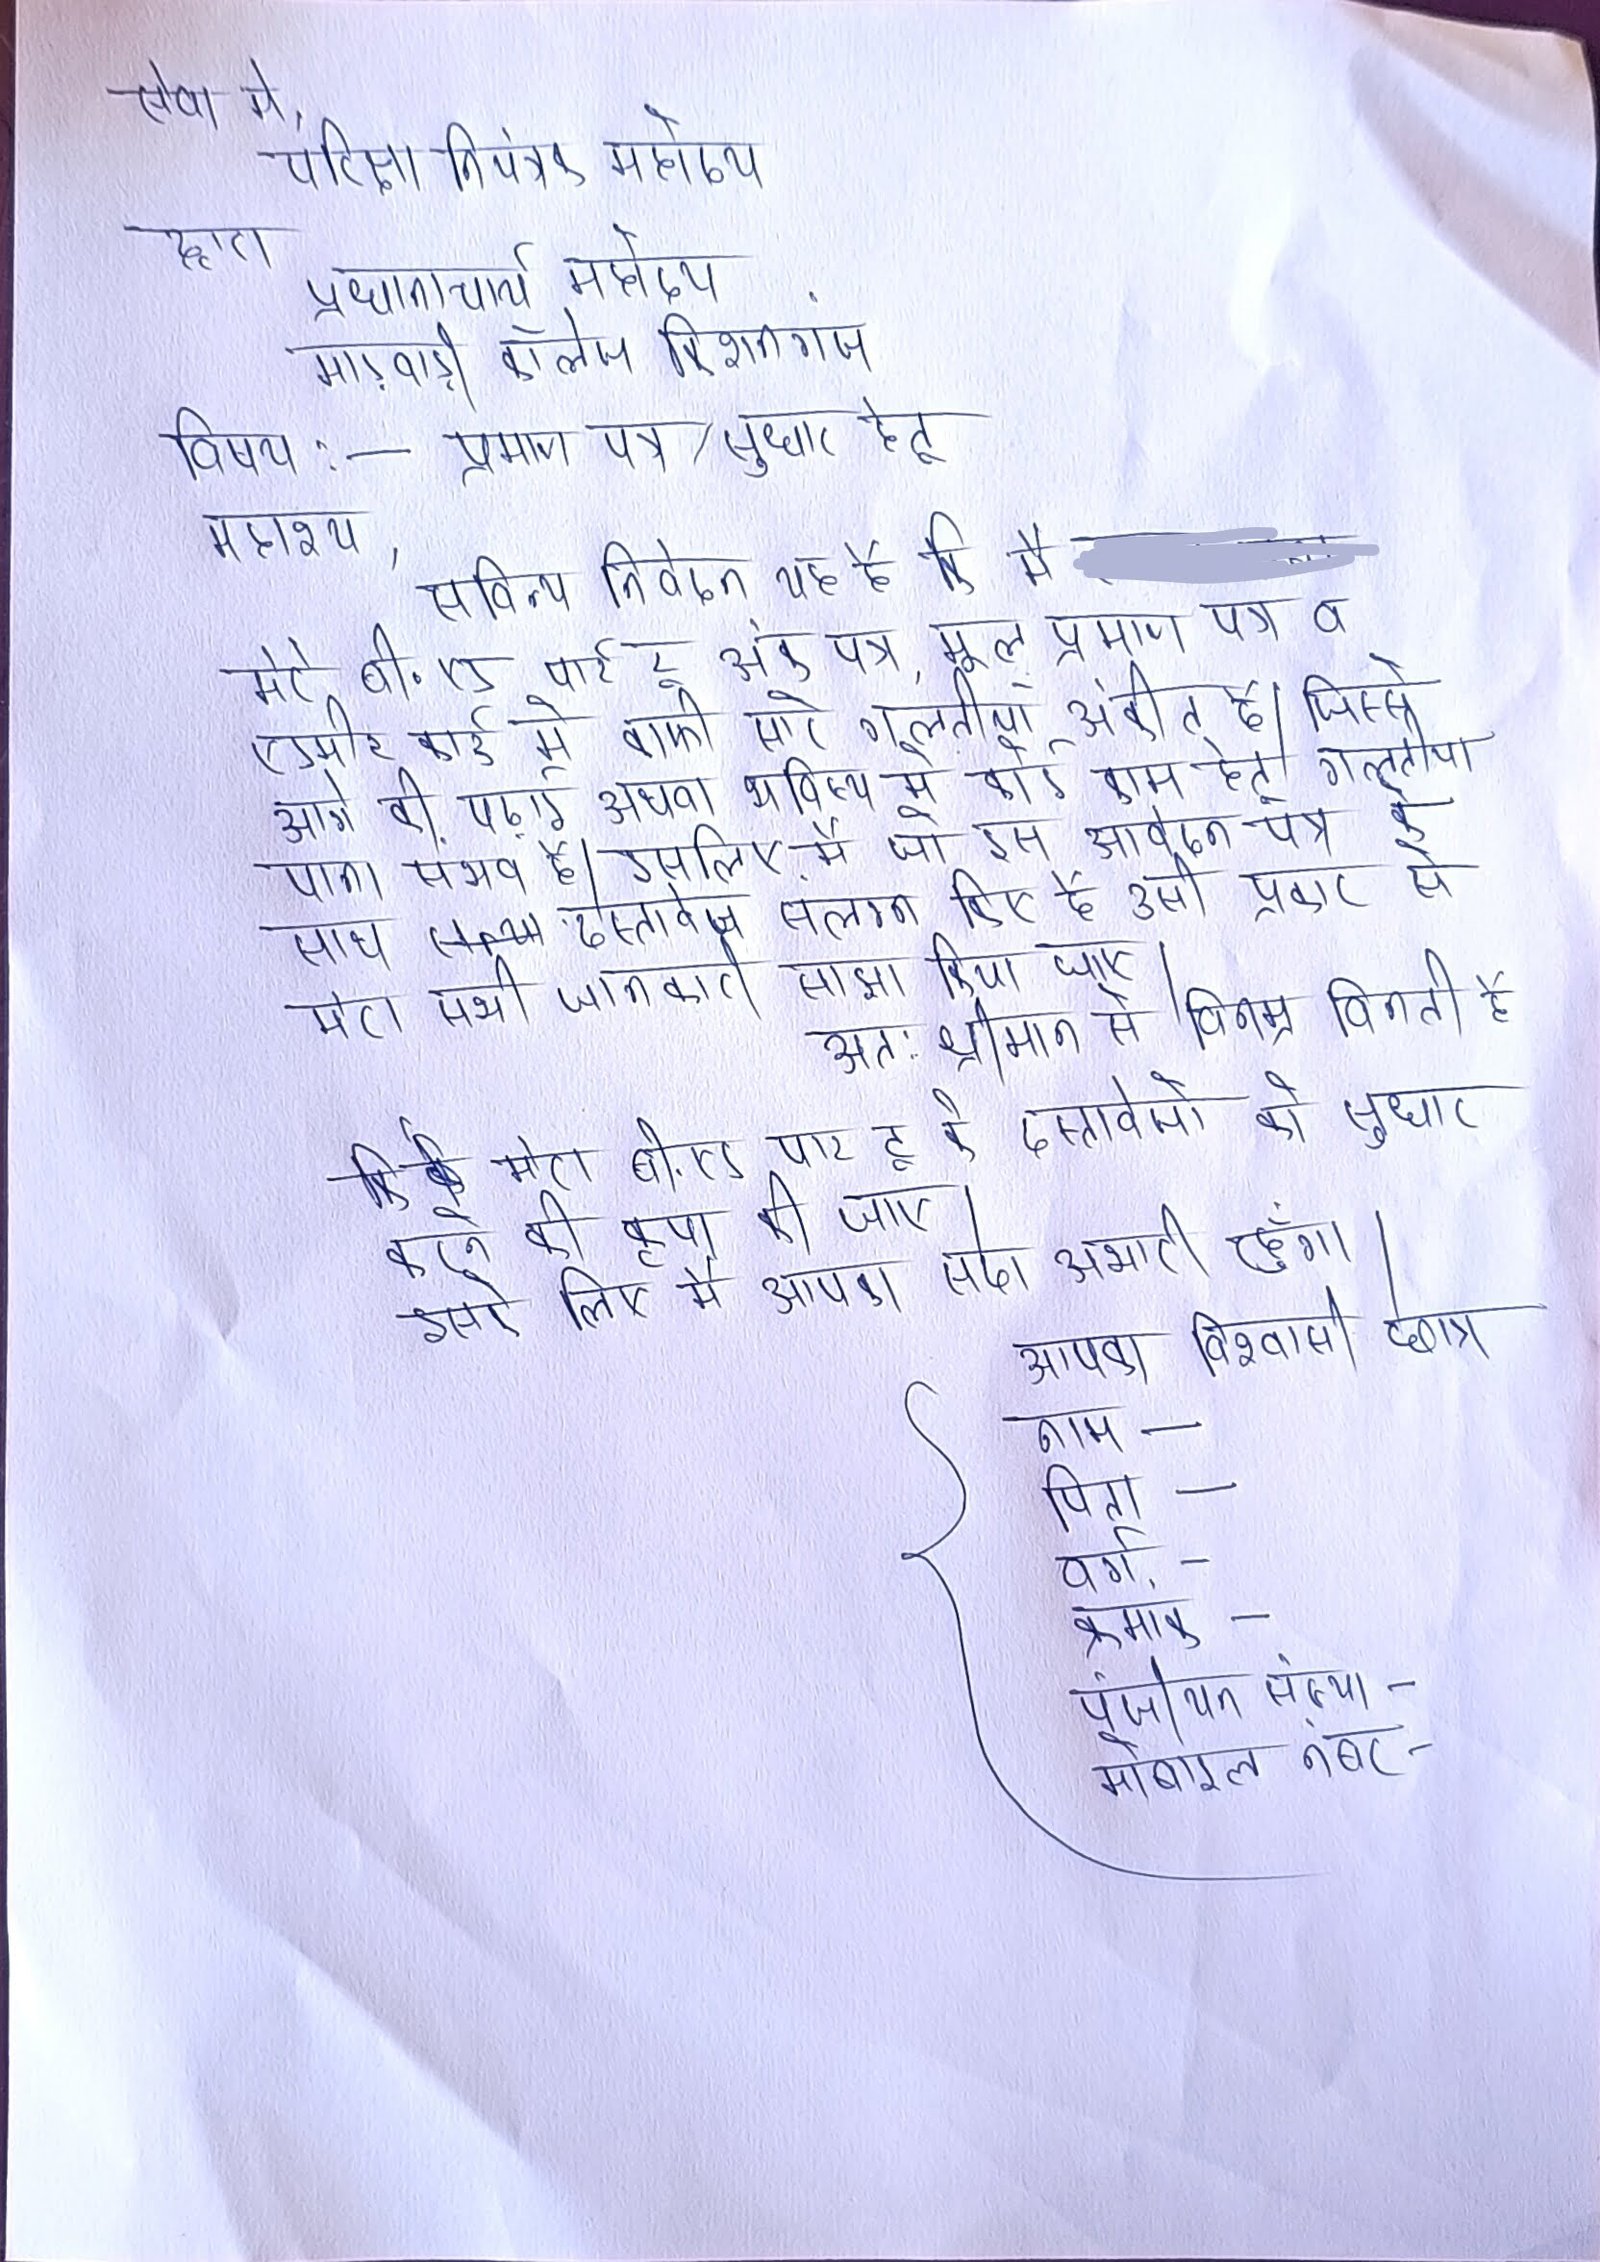 सेवा मे,
परिक्षा नियंत्रक महोदय
द्वारा
प्रधानाचार्य महोदय
माड़वाड़ी कॉलेज किशनगंज
विषय :— प्रमाण पत्र सुधार हेतू
महाश्य,
सविन्य निवेदन यह है कि मै
मेरे बी.एड पार्ट टू अंक पत्र, मूल प्रमाण पत्र व
एडमीट कार्ड मे काफी सारे गलतीयां अंकीत है। जिस्से
आगे की पढ़ाई अथवा भविष्य मे कोई काम हेतू गलतीया
पाना संभव है। इसलिए मै जो इस आवेदन पत्र के
साथ दस्तावेज संलग्न किए है उसी प्रकार से
मेरा सभी जानकारी साझा किया जाए।
अत: श्रीमान से विनम्र विनती है
कि मेरा बी.एड पार्ट टू के दस्तावेजो को सुधार
करने की कृपा की जाए।
इसके लिए मै आपका सदा अभारी रहूँगा।
आपका विश्वासी छात्र
नाम —
पिता —
वर्ग. -
क्रमांक —
पंजीयन संख्या -
मोबाइल नंबर -